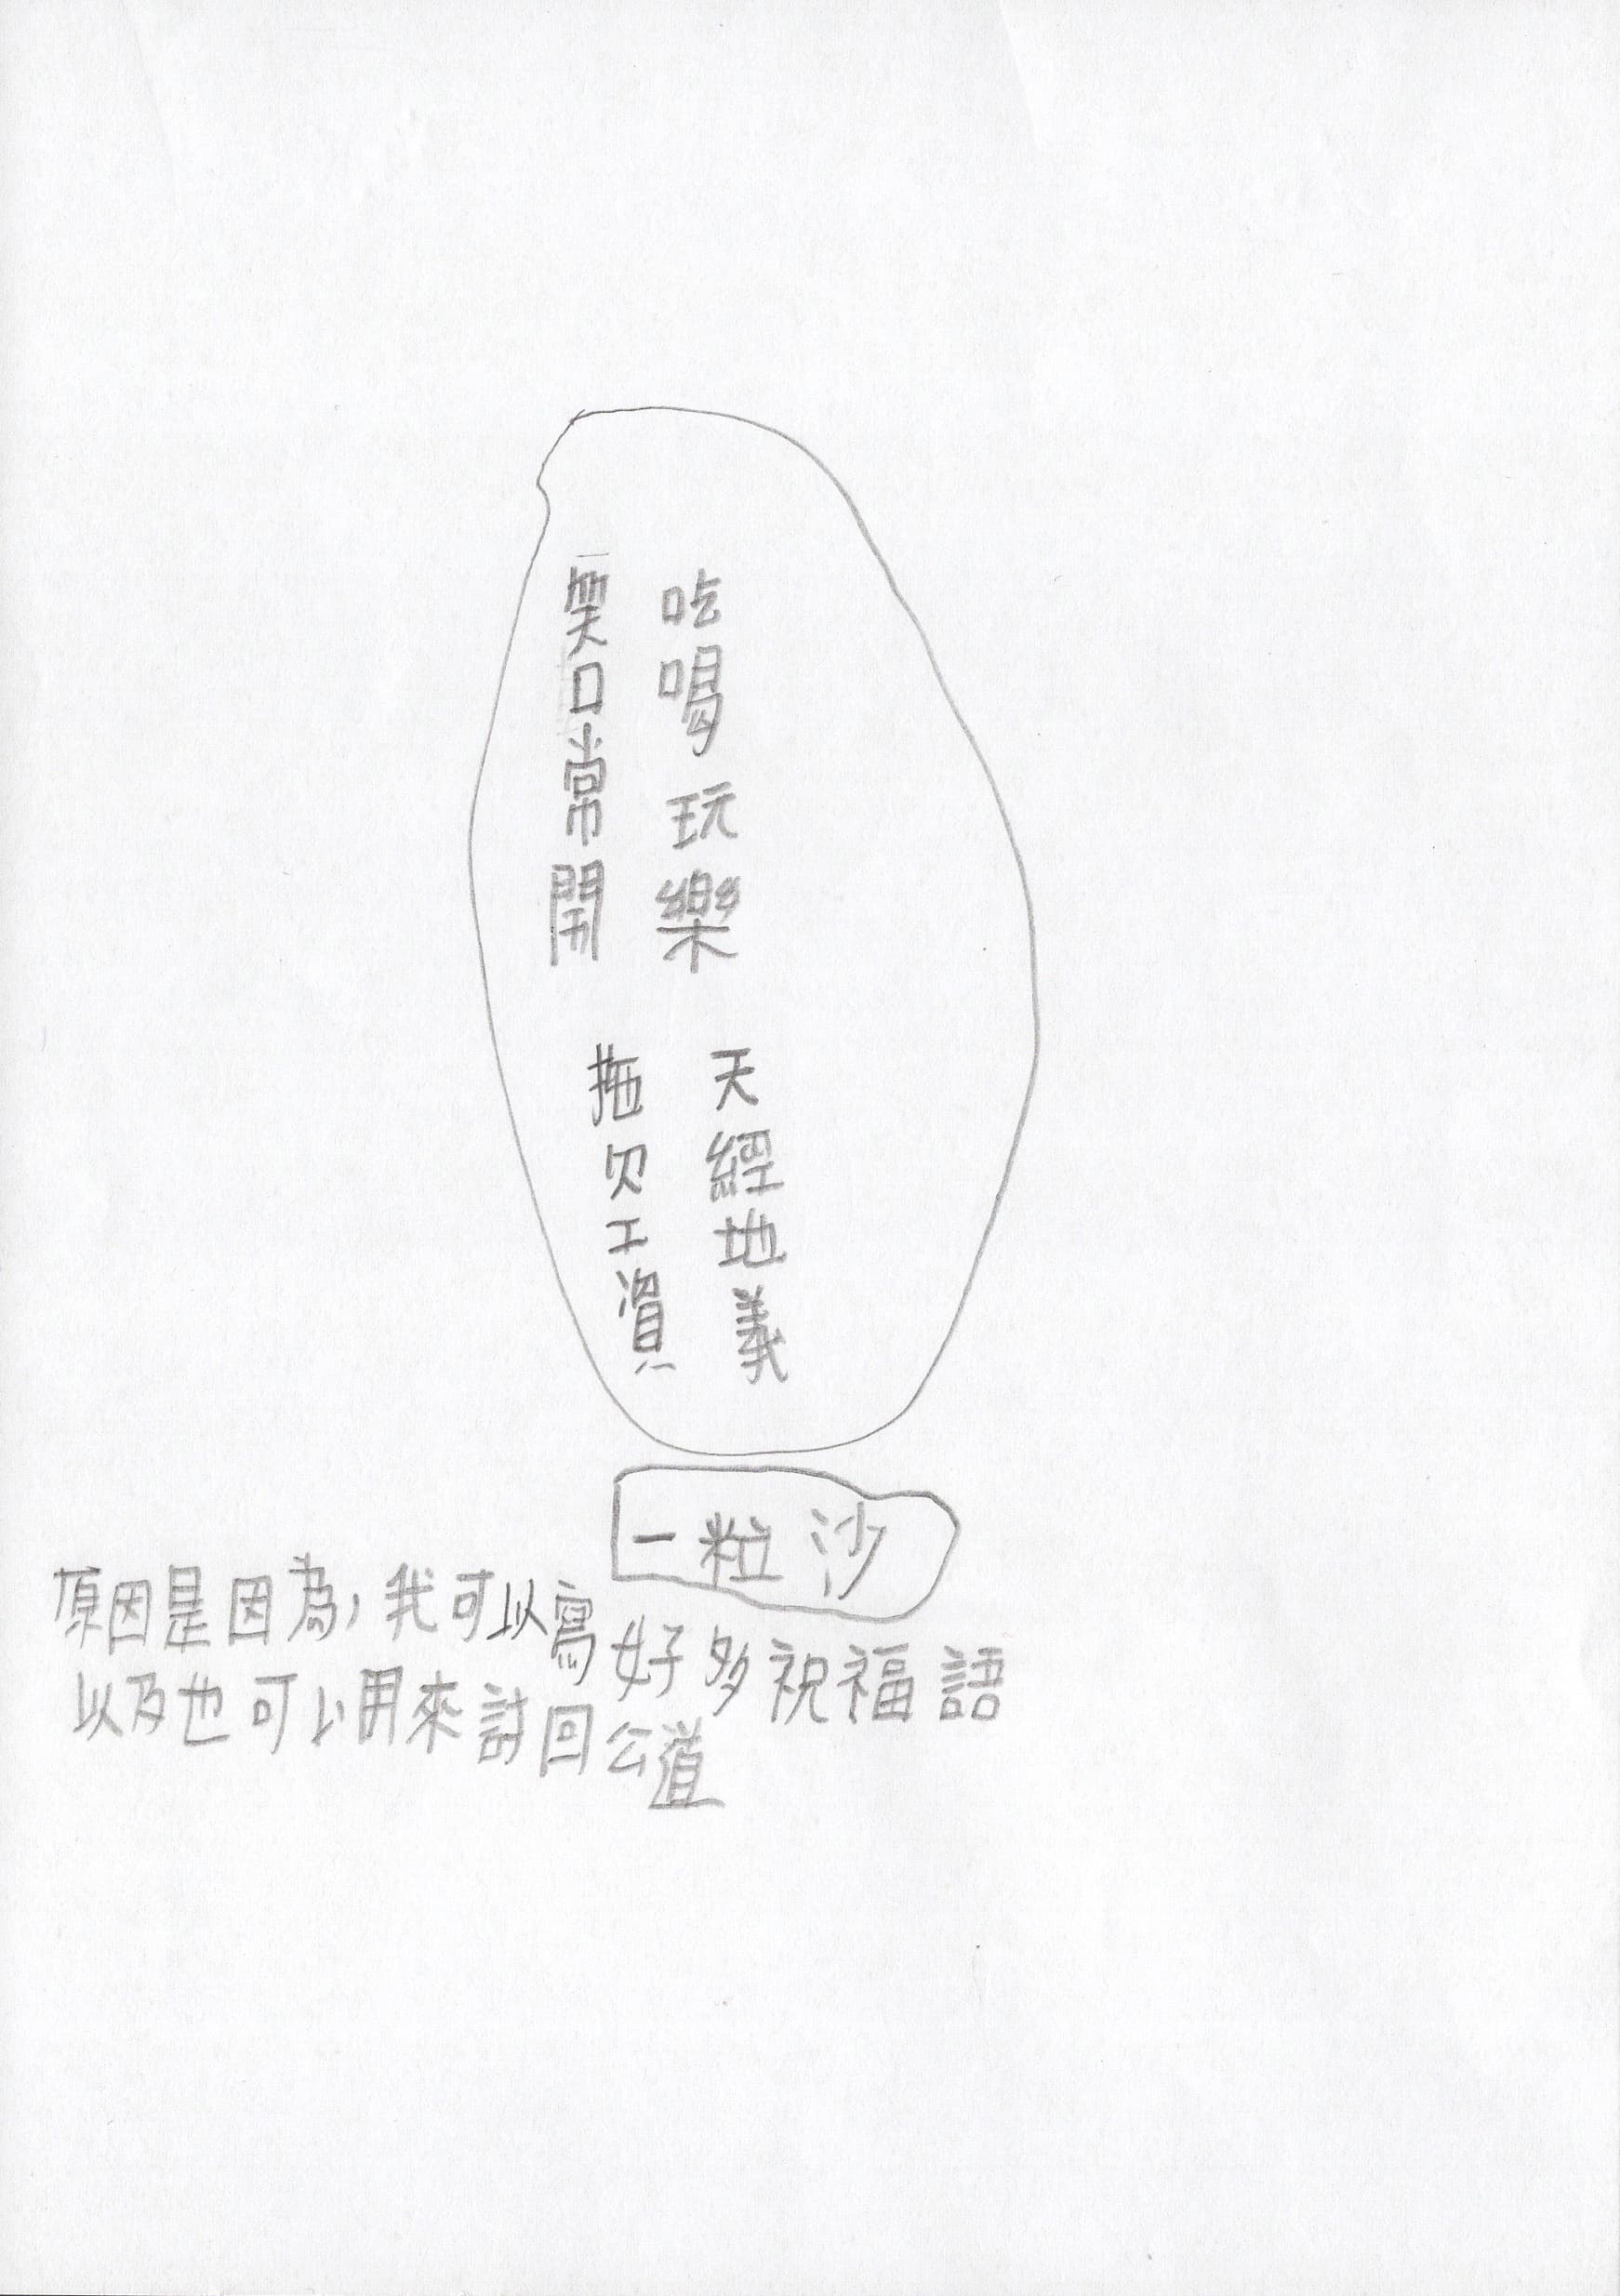 吃喝玩樂
笑口常開
天經地義
拖欠工資
一粒沙
原因是因為，我可以寫好多祝福語
以及也可以用來討回公道